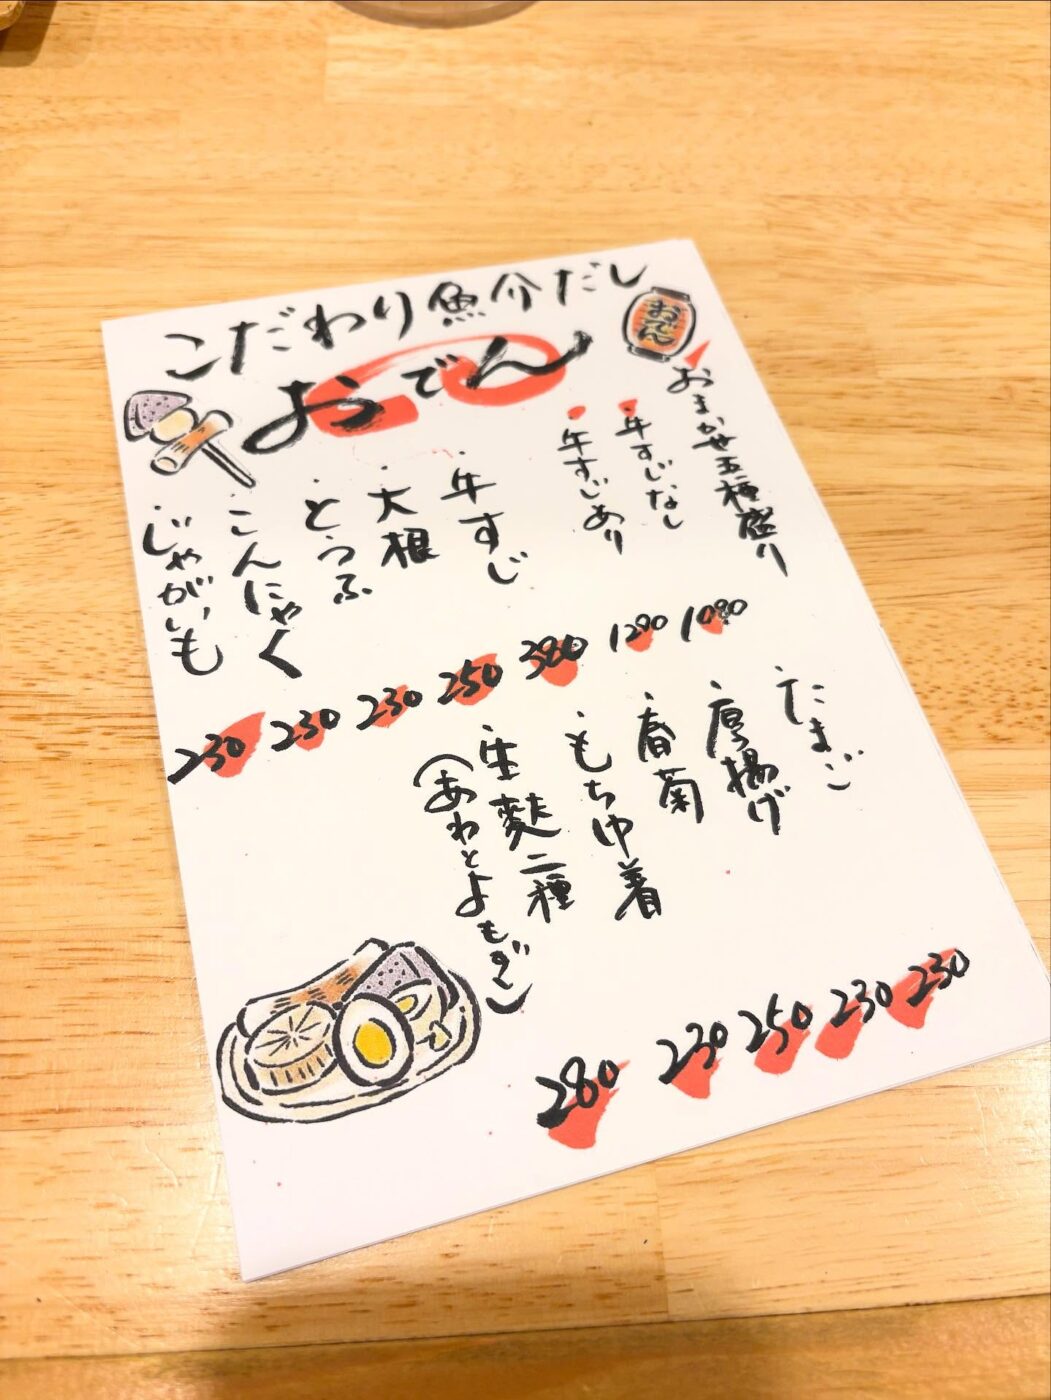 こだわり魚介だし
おでん
おでん
おまかせ五種盛り
牛すじなし 1080
牛すじあり 1290
・牛すじ 380
・大根 250
・とうふ 230
・こんにゃく 230
・じゃがいも 230
・たまご 230
・厚揚げ 230
・春菊 250
・もちゆ着 230
・生麩二種 280
(あわとよもぎ)